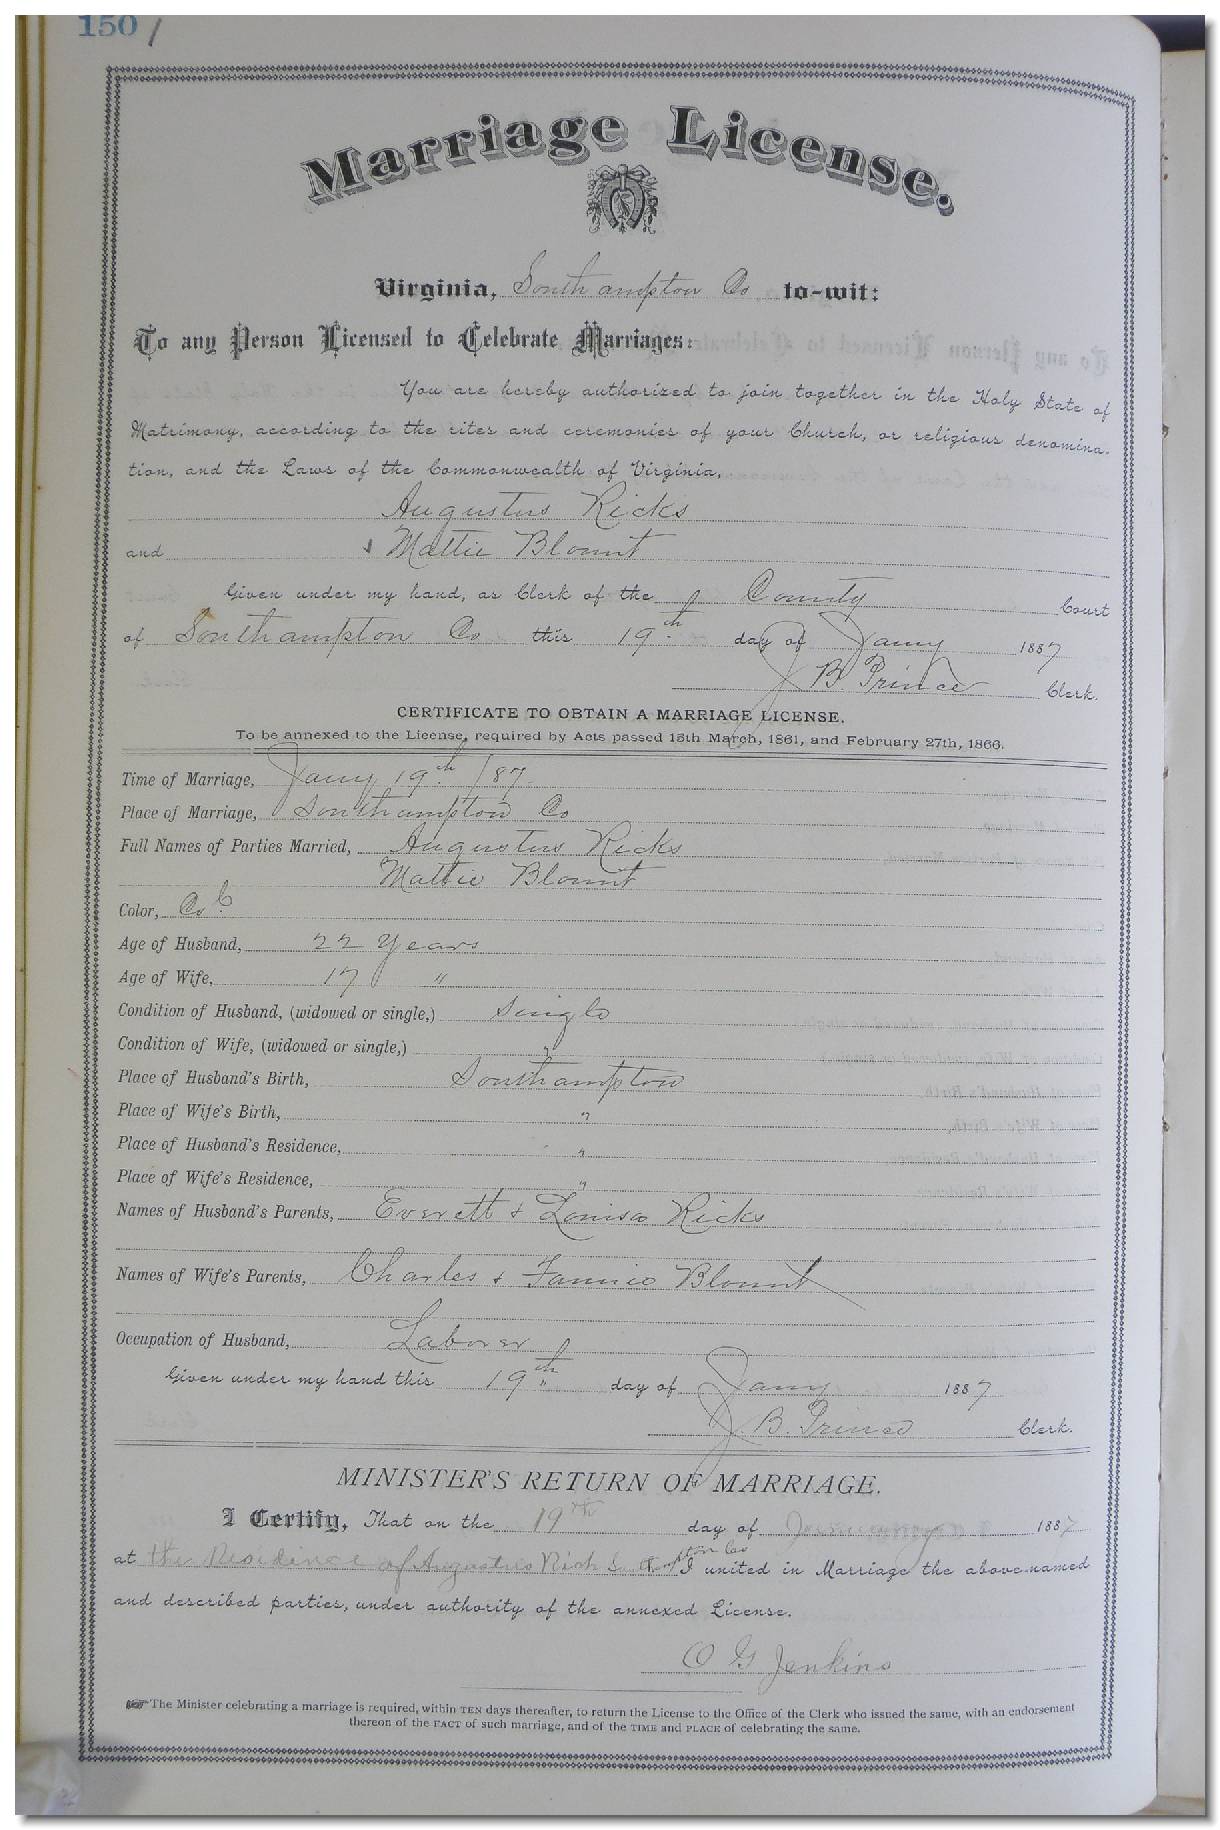 150
Marriage License.
Virginia, Southampton Co to-wit:
To any Person Licensed to Celebrate Marriages:
You are hereby authorized to join together in the Holy State of
Matrimony, according to the rites and ceremonies of your Church, or religious denomina-
tion, and the Laws of the Commonwealth of Virginia,
Augustus Ricks
and & Mattie Blount
Given under my hand, as Clerk of the County Court
of Southampton Co this 19th day of Jany 1887
J B Prince Clerk.
CERTIFICATE TO OBTAIN A MARRIAGE LICENSE.
To be annexed to the License, required by Acts passed 15th March, 1861, and February 27th, 1866.
Time of Marriage, Jany 19th /87
Place of Marriage, Southampton Co
Full Names of Parties Married, Augustus Ricks
Mattie Blount
Color, Col
Age of Husband, 22 Years
Age of Wife, 17 "
Condition of Husband, (widowed or single,) Single
Condition of Wife, (widowed or single,) "
Place of Husband's Birth, Southampton
Place of Wife's Birth, "
Place of Husband's Residence, "
Place of Wife's Residence, "
Names of Husband's Parents, Everett & Louisa Ricks
Names of Wife's Parents, Charles & Fannie Blount
Occupation of Husband, Laborer
Given under my hand this 19th day of Jany 1887
J. B. Prince Clerk.
MINISTER'S RETURN OF MARRIAGE.
I Certify, That on the 19th day of January 1887
at the Residence of Augustus Rick I united in Marriage the above-named
and described parties, under authority of the annexed License.
O G Jenkins
The Minister celebrating a marriage is required, within TEN days thereafter, to return the License to the Office of the Clerk who issued the same, with an endorsement
thereon of the FACT of such marriage, and of the TIME and PLACE of celebrating the same.